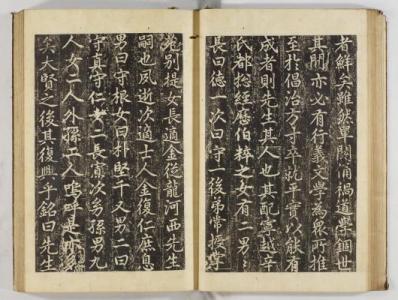 者鮮矣雖然單閼涌禍道學錮世
其間亦必有行義文學為衆所推
至於倡治方寸卒就平實以能有
成者則先生其人也其配
氏都總經歷伯粹之女有二男
長曰德一次曰守一後弟常
提女長適金從龍河西先生
嗣也夙逝次適士人金復仁庶息
男曰守根女曰朴堅千又男二曰
守真守仁女二長次幼孫男九
人女一人外孫十人嗚呼是亦多
矣大賢之後其復興乎銘曰先生